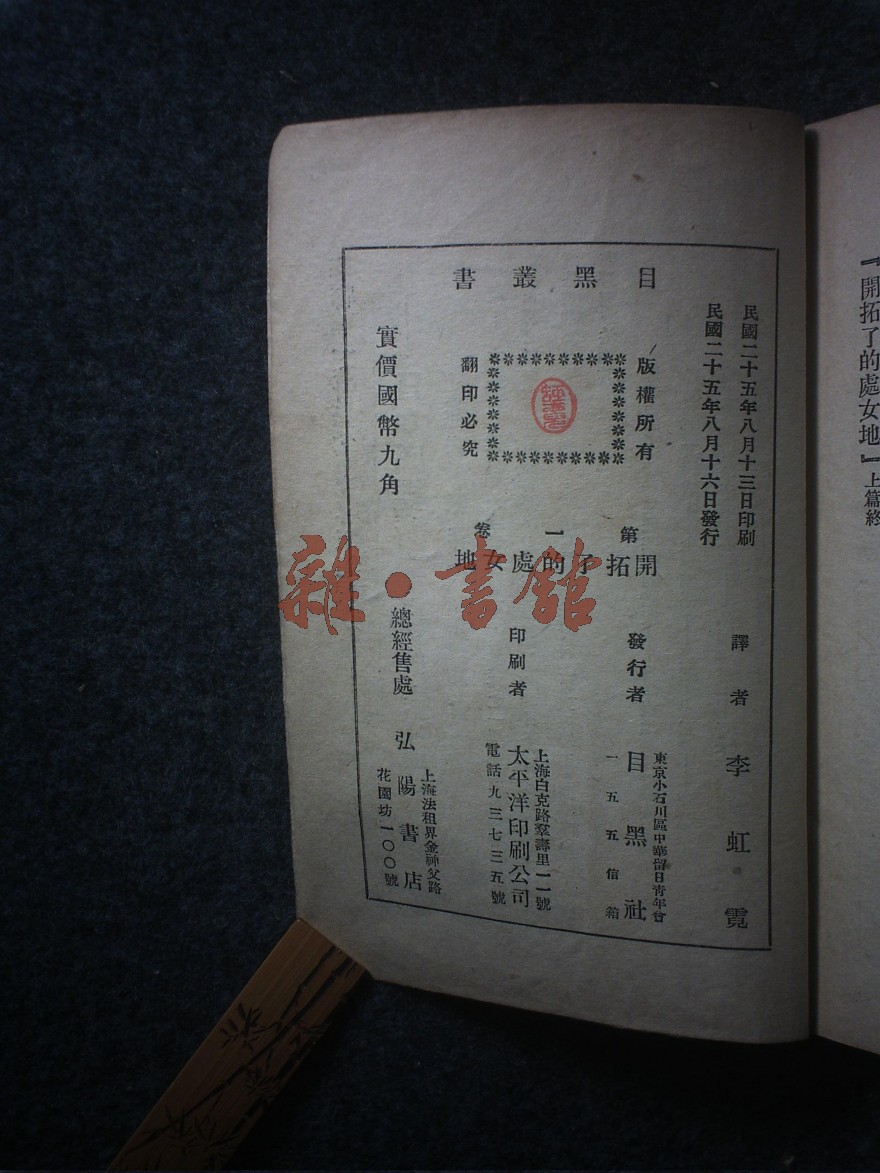 『開拓了的處女地』上篇終
民國二十五年八月十三日印刷
民國二十五年八月十六日發行
目黑叢書
版權所有
翻印必究
開拓了的處女地
第一卷
譯者 李虹霓
發行者 目黑社
東京小石川區中華留日青年會
一五五信箱
印刷者 太平洋印刷公司
上海白克路羣壽里一一號
電話九三七三五號
實價國幣九角
總經售處 弘陽書店
上海法租界金神父路
花園坊一〇〇號
雜·書館